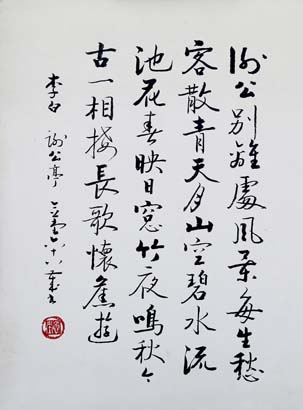 謝公別離處風景每生愁
客散青天月山空碧水流
池花春映日窗竹夜鳴秋今
古一相接長歌懷舊遊
李白 謝公亭